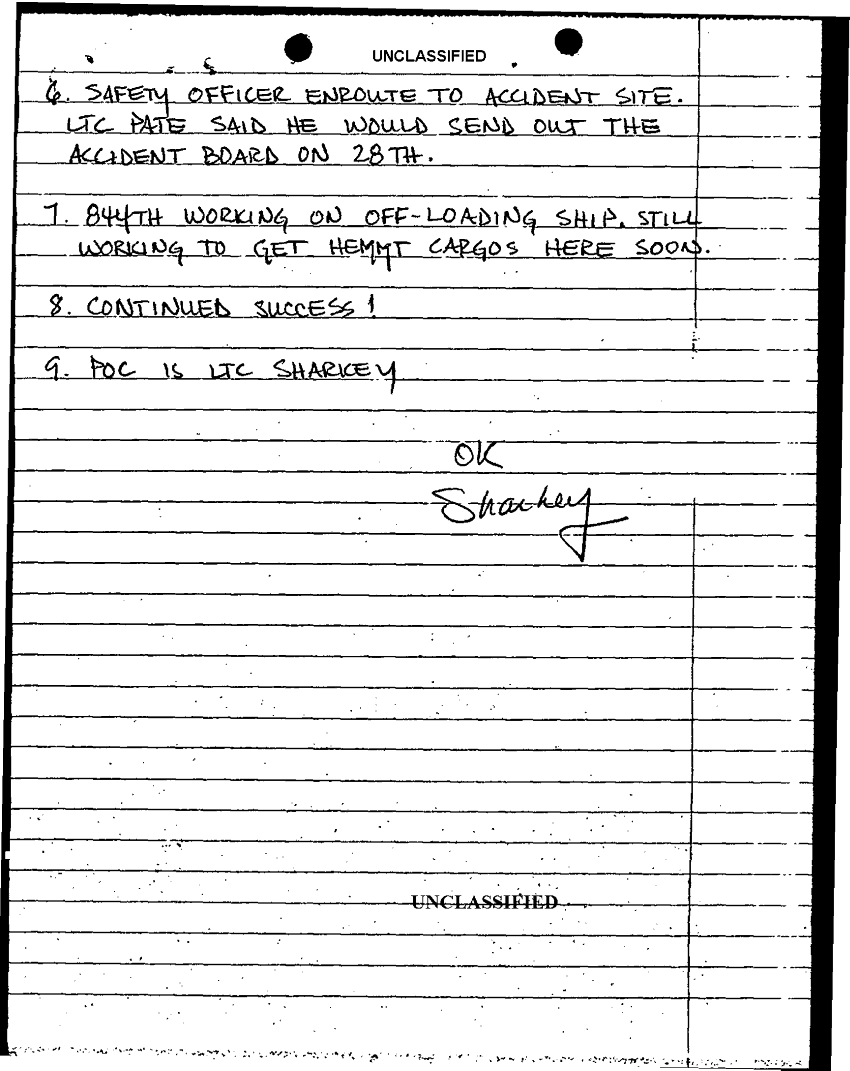 UNCLASSIFIED
6. SAFETY OFFICER ENROUTE TO ACCIDENT SITE.
LTC PATE SAID HE WOULD SEND OUT THE
ACCIDENT BOARD ON 28TH.
7. 844TH WORKING ON OFF-LOADING SHIP. STILL
WORKING TO GET HEMMT CARGOS HERE SOON.
8. CONTINUED SUCCESS!
9. POC IS LTC SHARKEY
OK
Sharkey
UNCLASSIFIED